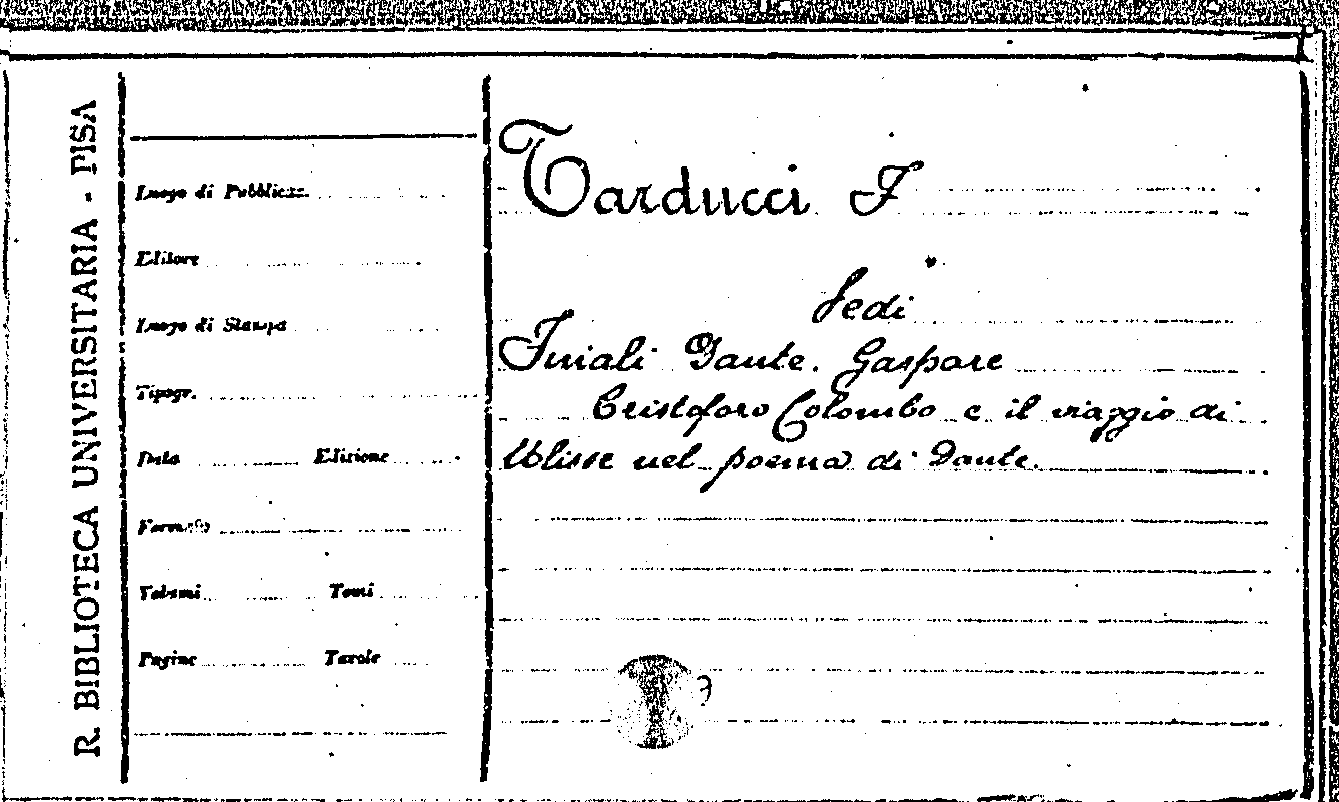 R. BIBLIOTECA UNIVERSITARIA - PISA
Luogo di Pubblicaz.
Editore
Luogo di Stampa
Tipogr.
Data Edizione
Formato
Volumi Tomi
Pagine Tavole
Tarducci F
Vedi
Finali Dante. Gaspare
Cristoforo Colombo e il viaggio di
Ulisse nel poema di Dante.